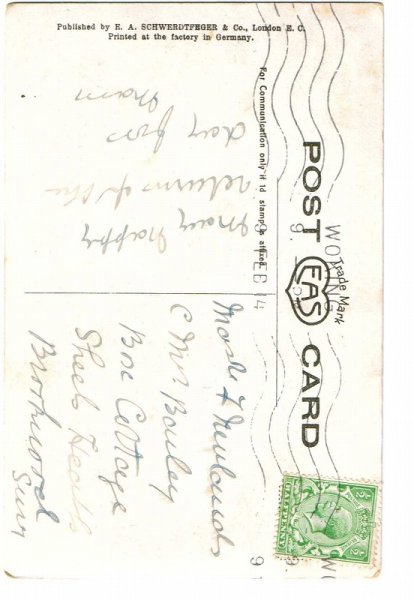 Published by E. A. SCHWERDTFEGER & Co., London E. C.
Printed at the factory in Germany.
POST CARD
EAS
Trade Mark
For Communication only if 1d stamp is affixed.
WOKING
9 FEB 14
many happy
returns of the
day from
mam
& Newlands
C Mrs
Box Cottage
Heath
Brookwood
Surrey
½ ½
HALFPENNY